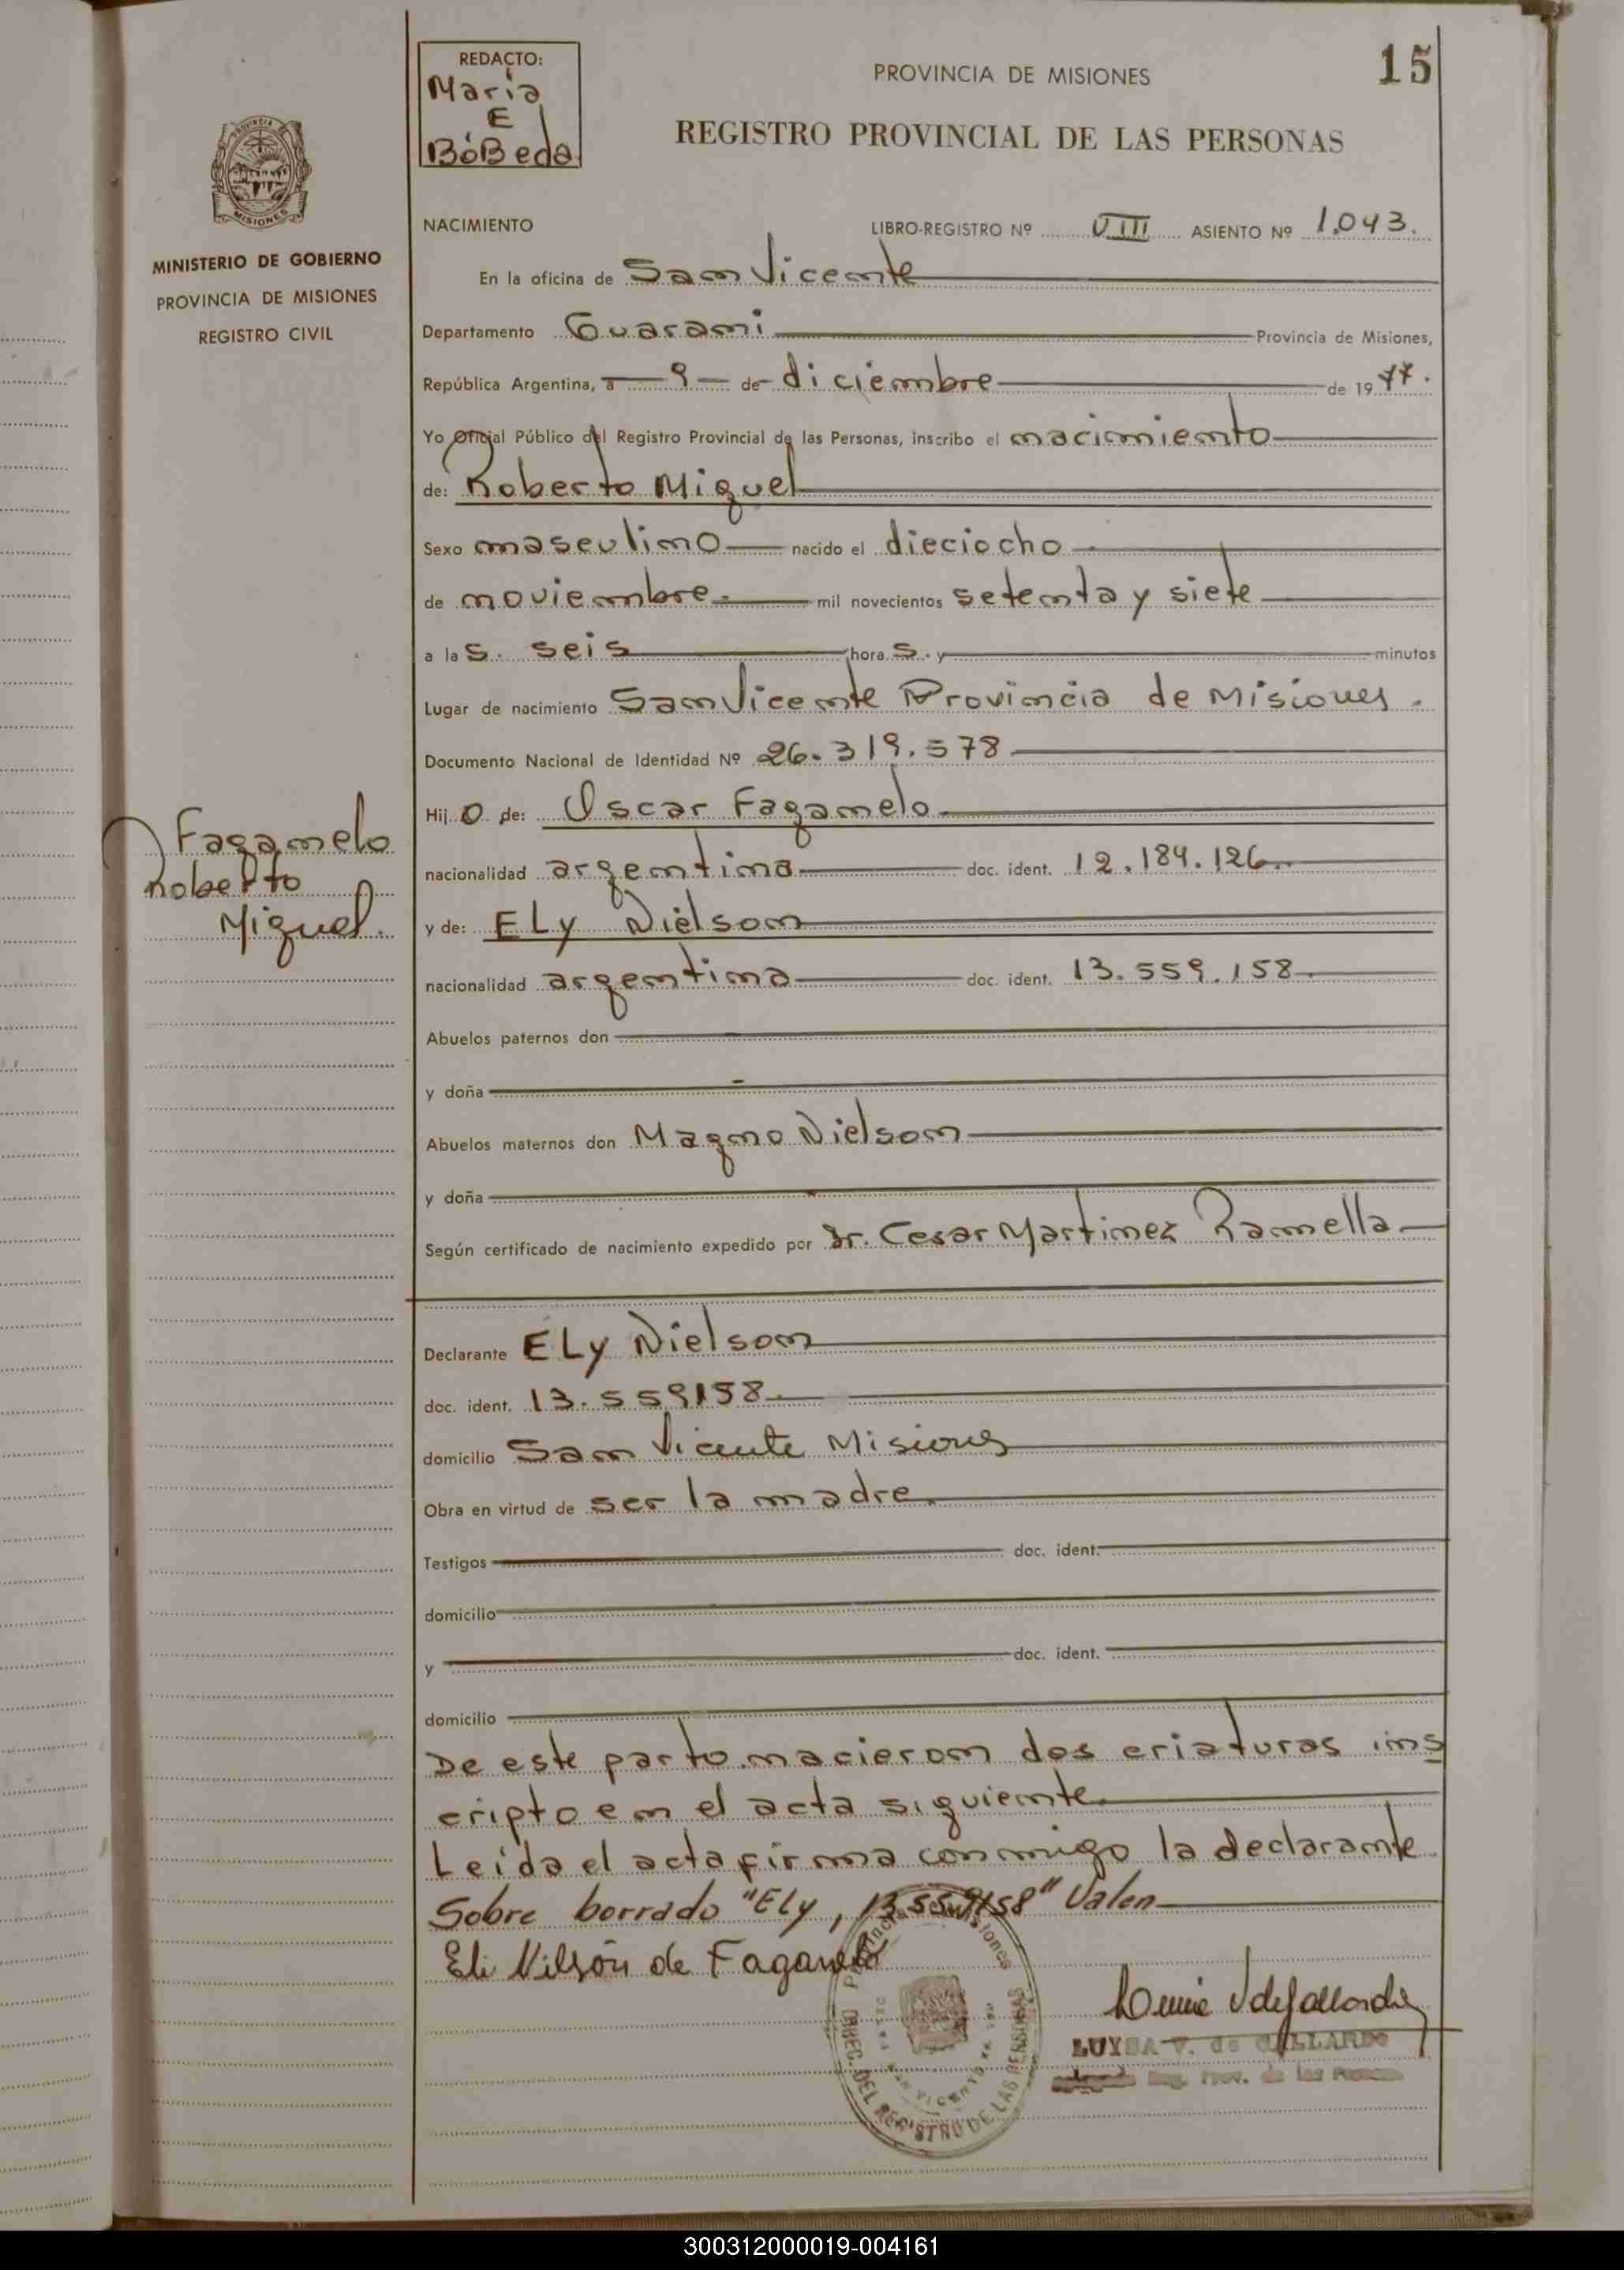 15
REDACTO:
Maria
E
BóBeda
PROVINCIA DE MISIONES
REGISTRO PROVINCIAL DE LAS PERSONAS
PROVINCIA DE
MISIONES
MINISTERIO DE GOBIERNO
PROVINCIA DE MISIONES
REGISTRO CIVIL
NACIMIENTO LIBRO-REGISTRO Nº VIII ASIENTO Nº 1.043.
En la oficina de San Vicente
Departamento Guarani Provincia de Misiones,
República Argentina, a 9 de diciembre de 1977.
Yo Oficial Público del Registro Provincial de las Personas, inscribo el nacimiento
de: Roberto Miguel
Sexo masculino nacido el dieciocho
de noviembre. mil novecientos setenta y siete
a las. seis horas. y minutos
Lugar de nacimiento San Vicente Provincia de Misiones.
Documento Nacional de Identidad Nº 26.319.578
Hijo de: Oscar Faganelo
Faganelo
Roberto
Miguel.
nacionalidad argentina doc. ident. 12.184.126.
y de: ELy Nielson
nacionalidad argentina doc. ident. 13.559.158
Abuelos paternos don
y doña
Abuelos maternos don Magno Nielson
y doña
Según certificado de nacimiento expedido por Dr. Cesar Martinez Ramella
Declarante ELy Nielson
doc. ident. 13.559158.
domicilio San Vicente Misiones
Obra en virtud de ser la madre
Testigos doc. ident.
domicilio
y doc. ident.
domicilio
De este parto nacieron dos criaturas ins
cripto en el acta siguiente.
Leida el acta firma conmigo la declarante
Sobre borrado "Ely, 13.559158" Valen
Eli Nilson de Faganelo
LUYSA V. de GALLARDO
Reg. Prov. de las Personas
DEL REGISTRO DE LAS PERSONAS
SAN VICENTE
300312000019-004161